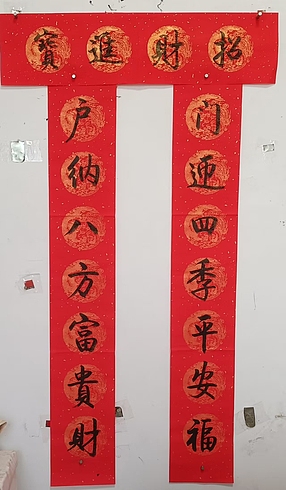 招財進寶
门迎四季平安福
户纳八方富貴財